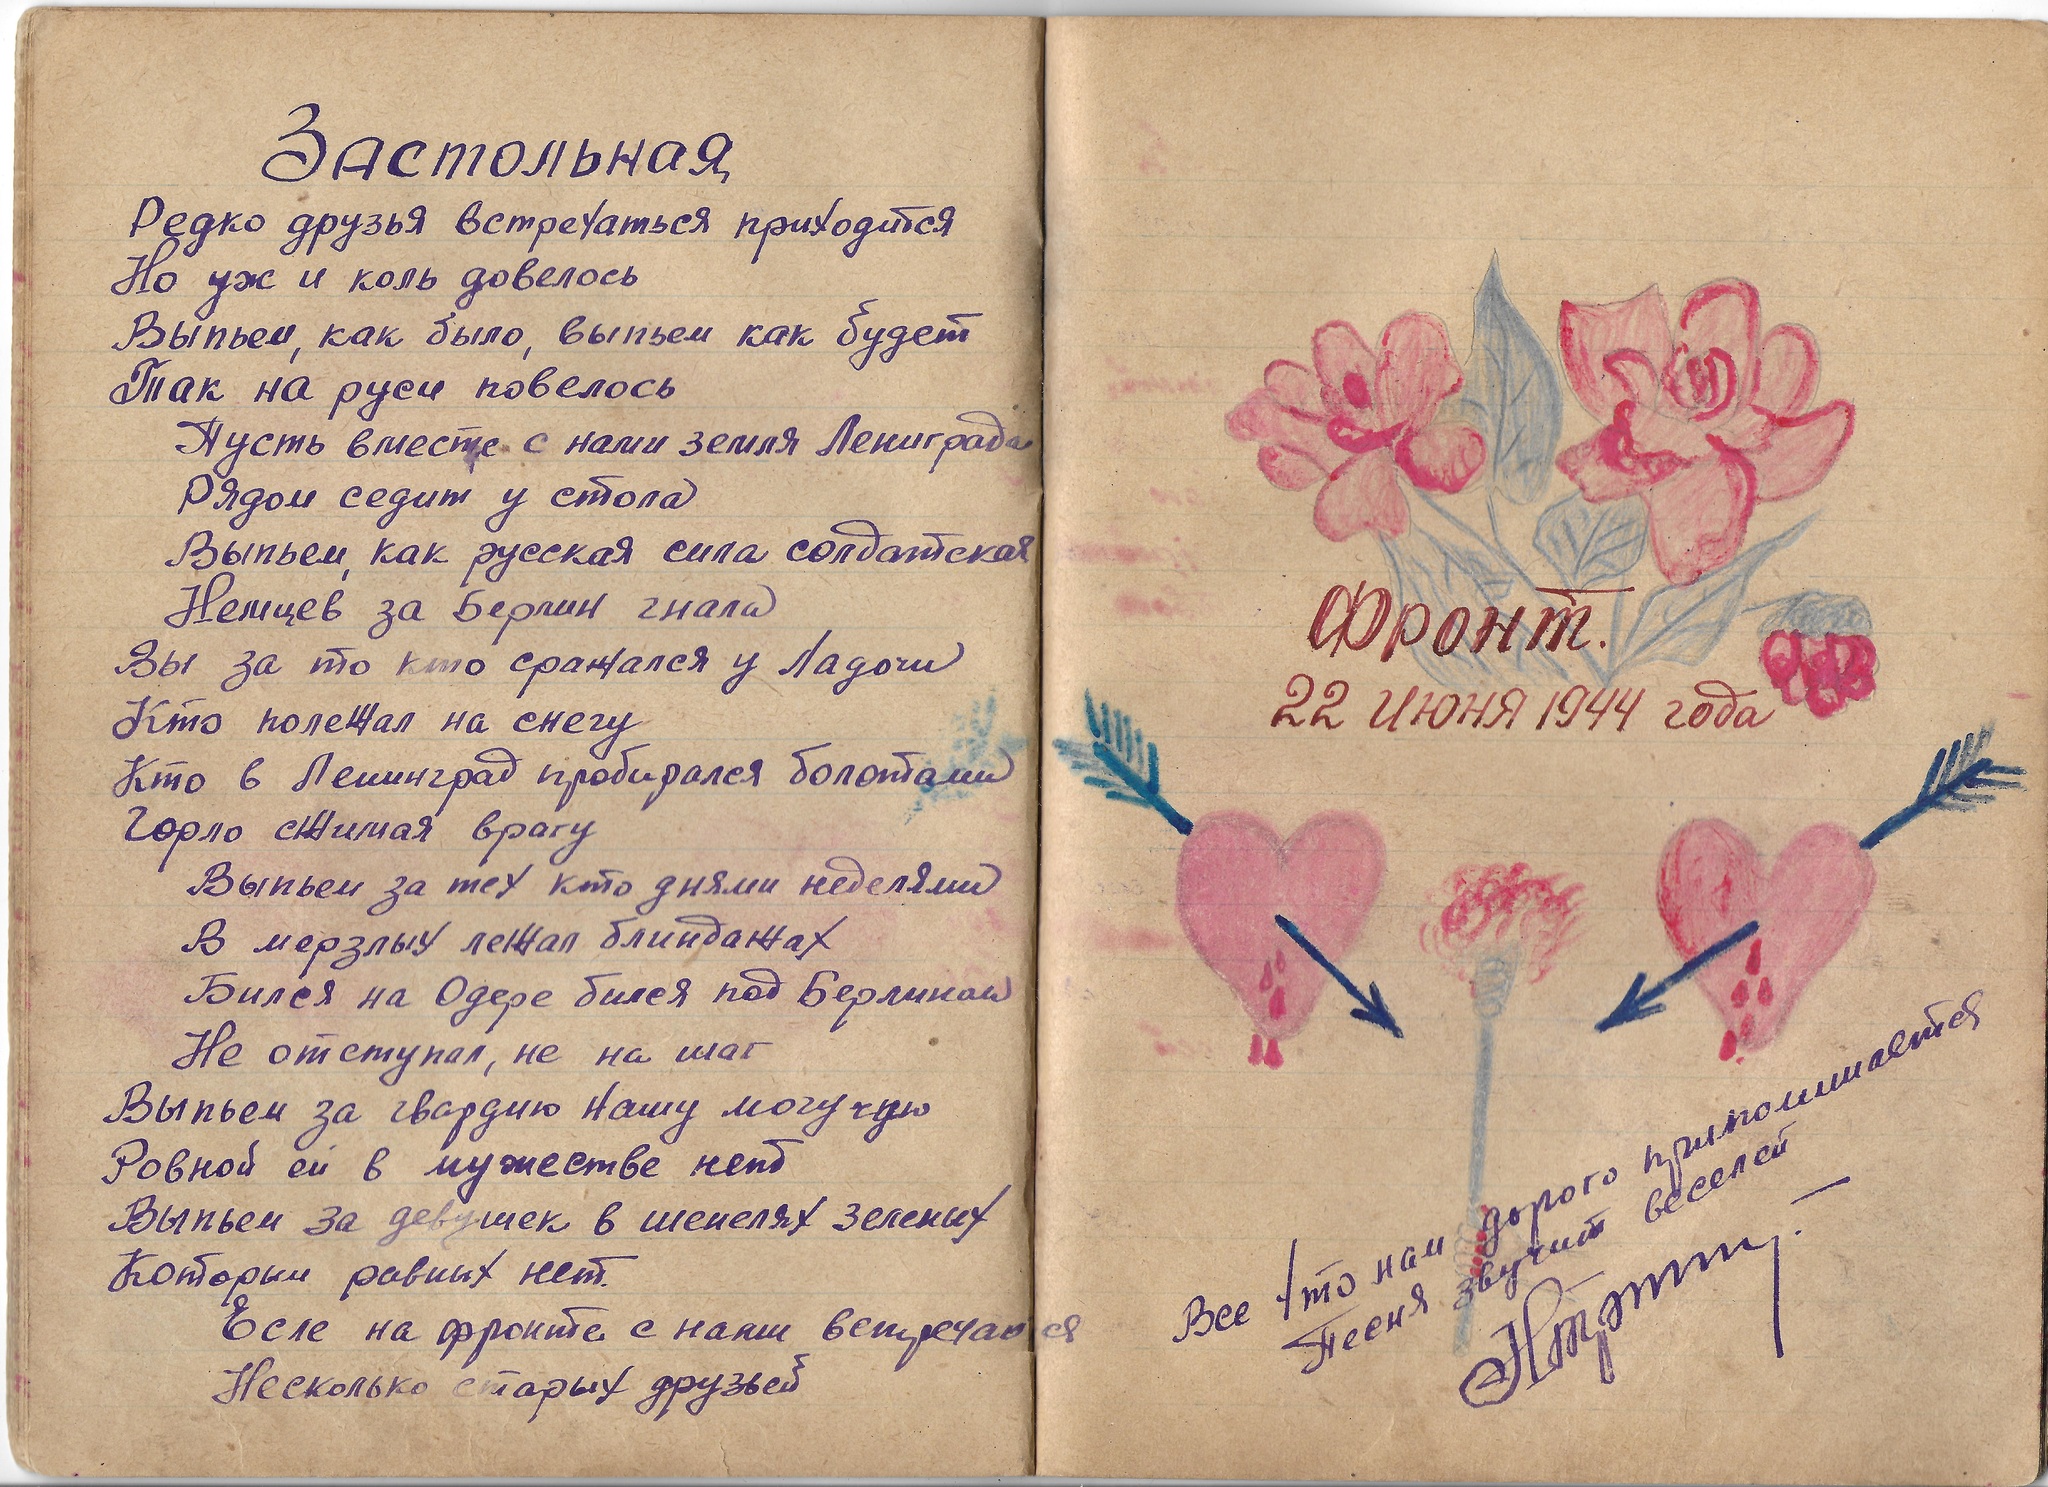 Застольная
Редко друзья встречаться приходится
Но уж и коль довелось
Выпьем, как было, выпьем как будет
Так на руси повелось
Пусть вместе с нами земля Ленинграда
Рядом седит у стола
Выпьем, как русская сила солдатская
Немцев за Берлин гнала
Вы за то кто сражался у Ладоги
Кто полежал на снегу
Кто в Ленинград пробирался болотами
Горло сжимая врагу
Выпьем за тех кто днями неделями
В мерзлых лежал блиндажах
Бился на Одере бился под Берлином
Не отступал, не на шаг
Выпьем за гвардию нашу могучую
Ровной ей в мужестве нет
Выпьем за девушек в шенелях зелених
Которым равных нет.
Есле на фронте с нами встречаются
Несколько старых друзьей
Фронт.
22 июня 1944 года
Все что нам дорого припоминается
Песня звучит веселей